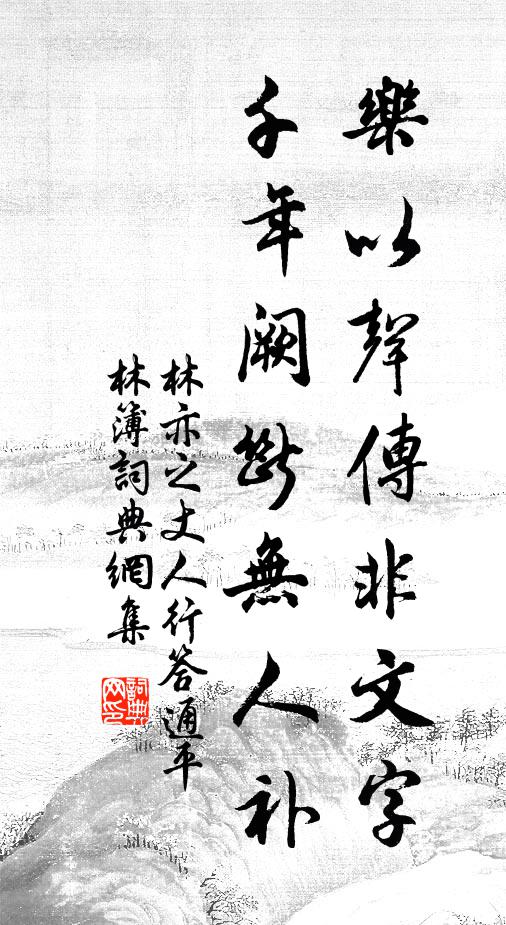 樂以聲傳非文字
千年闕斷無人补
林亦之丈人行答通平
林簿詞典網集
詞典網印